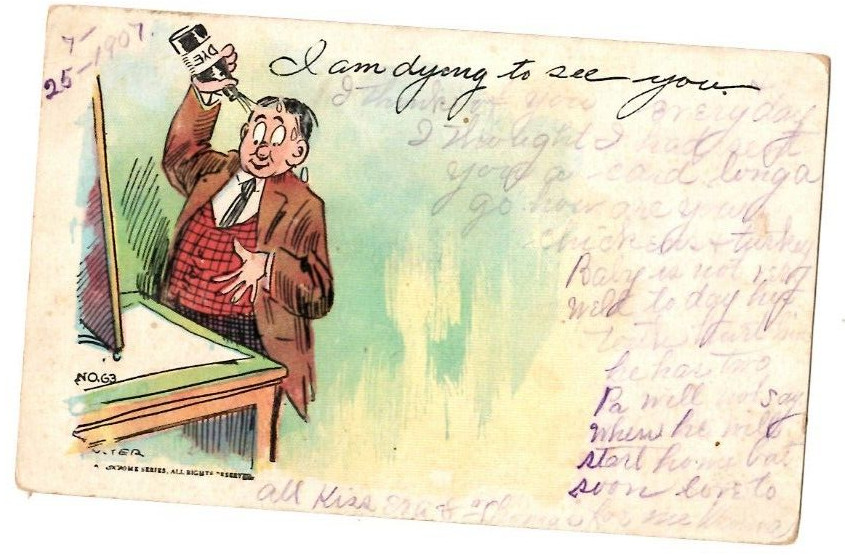 7-
25-1907.
DYE
I am dying to see you.
I think of you every day
I thought I had sent
you a card long a
go how are your
chickens & turkey
Baby is not very
well to day his
teeth hurt him
he has two
Pa will not say
when he will
start home but
soon love to
all Kiss for me
NO. 63
SERIES, ALL RIGHTS RESERVED